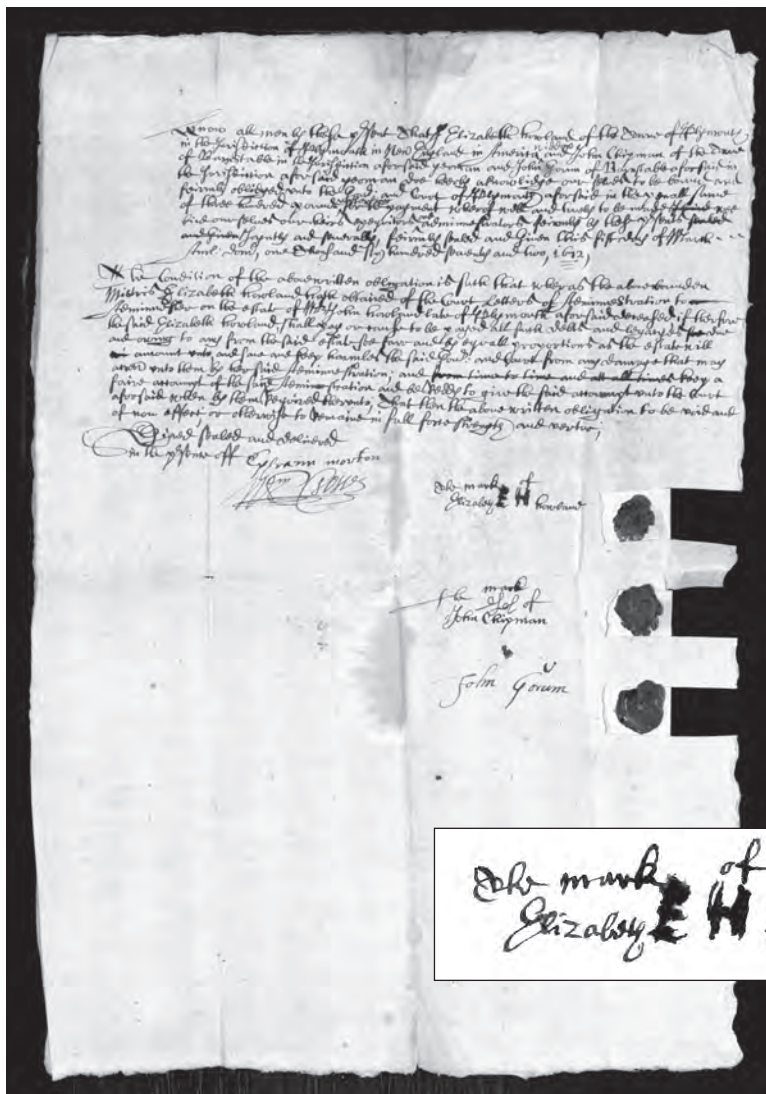 Know all men by these psent that I Elizabeth howland of the Towne of Plymouth
in the Jurisdiction of Plymouth in New England in America widdow and John Chipman of the Towne
of Barnstable in the Jurisdiction aforsaid yeoman and John Gorum of Barnstable aforsaid in
the Jurisdiction aforsaid yeoman doe heerby acknowlidge our selves to be bound and
feirmly obliged unto the Govr: and Court of Plymouth aforsaid in the penall sume
of three hundred pounds payment wherof well and truely to be made wee
bind our selves our heirs exequitors Adminnestrators feirmly by these psents sealed
and given Joyntly and severally, feirmly sealed and Given this fift day of March
Anno: Dom: one Thousand six hundred seaventy and two, 1672,
The Condition of the above written obligation is such that wheras the above bounden
Mistris Elizabeth howland hath obtained of the Court Letters of Adminnestration to
Adminnester on the estate of Mr John howland late of Plymouth aforsaid deceased if therfore
the said Elizabeth howland shall pay or cause to be payed all such debts and legacyes due
and owing to any from the said estate soe farr and by equall proportions as the estate will
amount unto and save and keep harmles the said Govr: and Court from any damage that may
unto them by her said Adminnestration; and from time to time and att all times keep a
faire accoumpt of the said Adminnestration and be Reddy to give the said accoumpt unto the Court
aforsaid when by them Required therunto; That then the above written obligation to be void and
of non effect or otherwise to Remaine in full force strength and vertue;
Signed sealed and delivered
In the psence off Ephraim morton
The mark of
Elizabeth E H howland
the mark of
John Chipman
John Gorum
The mark of
Elizabeth E H